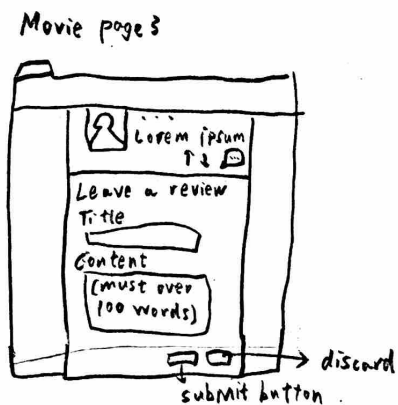 Movie page 3
...
Lorem ipsum
↑↓
Leave a review
Title
Content
(must over
100 words)
discard
submit button